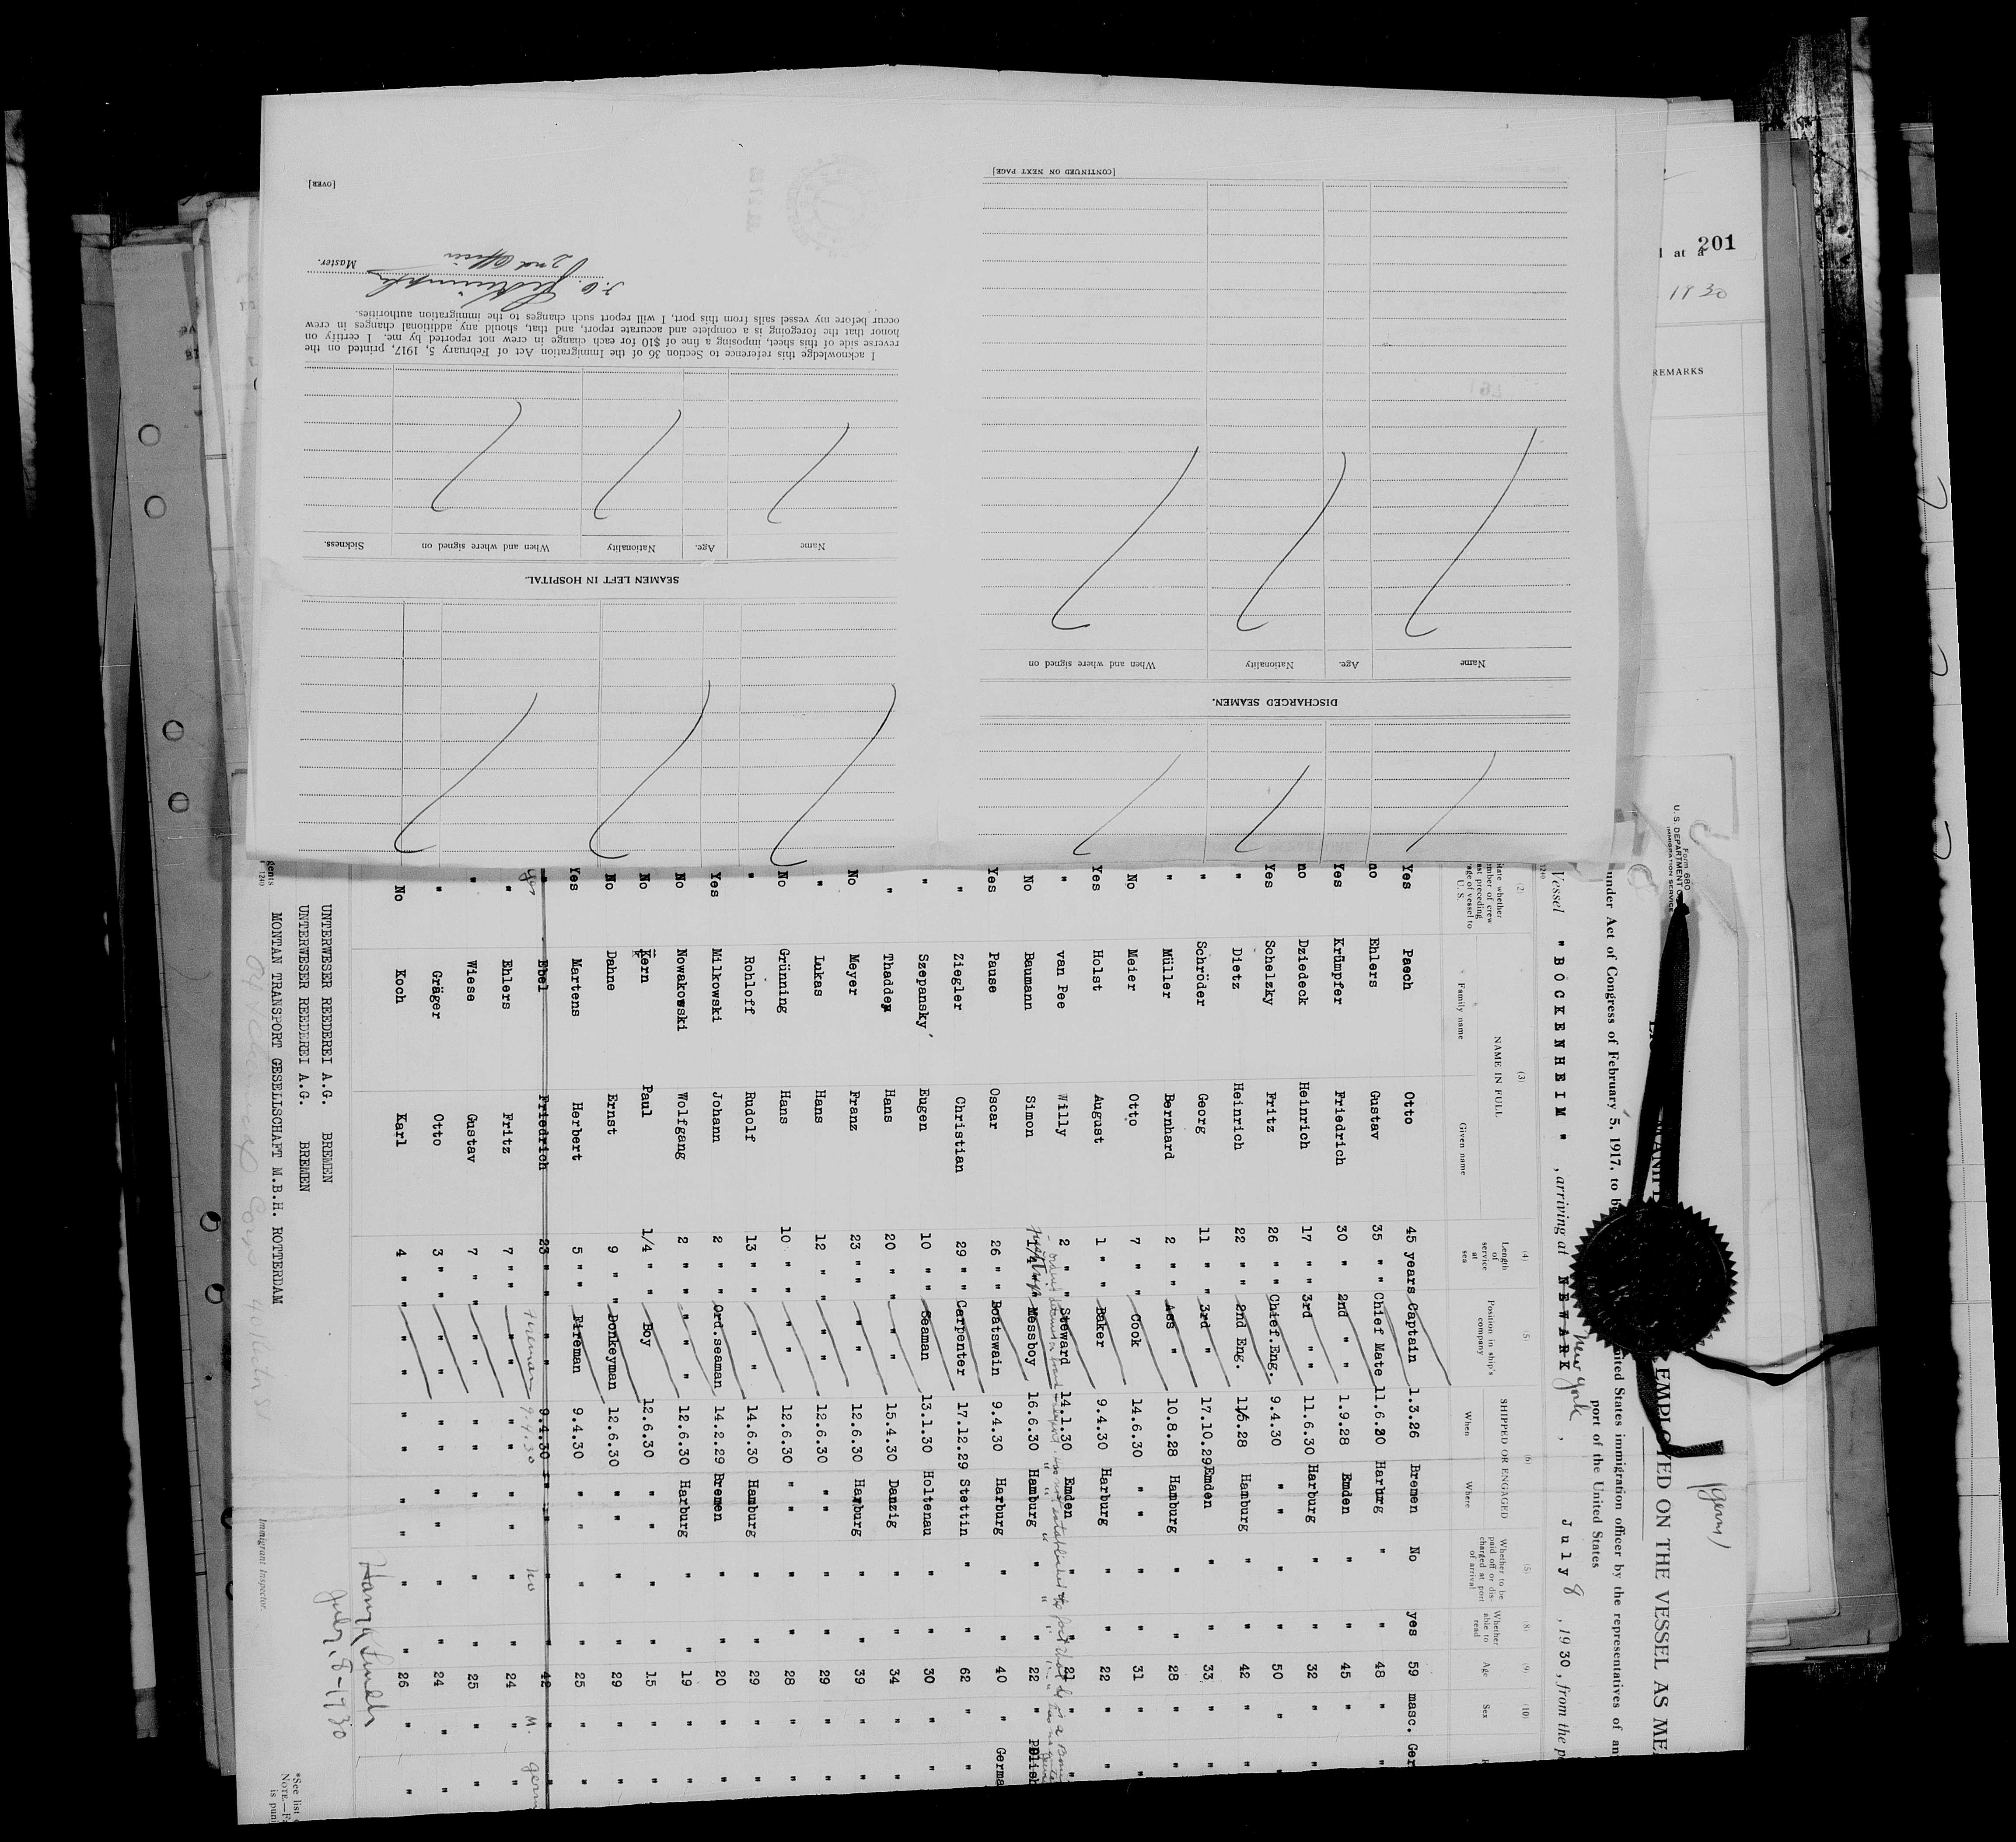 201
l at a
1930
REMARKS
[CONTINUED ON NEXT PAGE]
DISCHARGED SEAMEN.
Name Age. Nationality When and where signed on
SEAMEN LEFT IN HOSPITAL.
Name Age. Nationality When and where signed on Sickness.
I acknowledge this reference to Section 36 of the Immigration Act of February 5, 1917, printed on the
reverse side of this sheet, imposing a fine of $10 for each change in crew not reported by me. I certify on
honor that the foregoing is a complete and accurate report, and that, should any additional changes in crew
occur before my vessel sails from this port, I will report such changes to the immigration authorities.
Master.
2nd Officer
[OVER]
Form 680
U. S. DEPARTMENT O
IMMIGRATION SERVICE
(germ)
EMPLOYED ON THE VESSEL AS ME
under Act of Congress of February 5, 1917, to b nited States immigration officer by the representatives of an
port of the United States
Vessel " BOCKENHEIM " , arriving at NEWARK New York , July 8 , 1930 , from the p
(2) (3) (4) (5) (6) (8) (9) (10)
NAME IN FULL SHIPPED OR ENGAGED
Family name Given name Length of service at sea Position in ship's company When Where Whether to be paid off or discharged at port of arrival Whether able to read Age Sex
Yes Paech Otto 45 years Captain 1.3.26 Bremen No yes 59 masc. Ger
no Ehlers Gustav 35 " " Chief Mate 11.6.30 Harburg " " 48 " "
Yes Krümpfer Friedrich 30 " 2nd " " 1.9.28 Emden " " 45 " "
no Dziedeck Heinrich 17 " " 3rd " " 11.6.30 Harburg " " 32 " "
Yes Schelzky Fritz 26 " " Chief.Eng. 9.4.30 " " " " 50 " "
" Dietz Heinrich 22 " " 2nd Eng. 11.6.28 Hamburg " " 42 " "
" Schröder Georg 11 " " 3rd " 17.10.29 Emden " " 33 " "
" Müller Bernhard 2 " " Ass " 10.8.28 Hamburg " " 28 " "
No Meier Otto 7 " " Cook 14.6.30 " " " " 31 " "
Yes Holst August 1 " " Baker 9.4.30 Harburg " " 22 " "
" van Pee Willy 2 " " Steward 14.1.30 Emden " " 21 " "
No Baumann Simon 1/4 " " Messboy 16.6.30 Hamburg " " 22 " Polish
Yes Pause Oscar 26 " " Boatswain 9.4.30 Harburg " " 40 " Germa
" Ziegler Christian 29 " " Carpenter 17.12.29 Stettin " " 62 " "
" Szepansky Eugen 10 " " Seaman 13.1.30 Holtenau " " 30 " "
" Thaddey Hans 20 " " " " 15.4.30 Danzig " " 34 " "
No Meyer Franz 23 " " " " 12.6.30 Harburg " " 39 " "
" Lukas Hans 12 " " " " 12.6.30 " " " " 29 " "
No Grünning Hans 10 " " " " 12.6.30 " " " " 28 " "
" Rohloff Rudolf 13 " " " " 14.6.30 Hamburg " " 29 " "
Yes Milkowski Johann 2 " " Ord.seaman 14.2.29 Bremen " " 20 " "
No Nowakowski Wolfgang 2 " " " " 12.6.30 Harburg " " 19 " "
No Kern Paul 1/4 " " Boy 12.6.30 " " " " 15 " "
No Dahne Ernst 9 " " Donkeyman 12.6.30 " " " " 29 " "
Yes Martens Herbert 5 " " Fireman 9.4.30 " " " " 25 " "
" Ebel Friedrich 23 " " " " 9.4.30 " " " " 42 " "
yes Ehlers Fritz 7 " " Fireman 9.4.30 " " no " 24 M. germ
" Wiese Gustav 7 " " " " " " " " " " 25 " "
" Gräger Otto 3 " " " " " " " " " " 24 " "
No Koch Karl 4 " " " " " " " " " " 26 " "
July 8-1930
UNTERWESER REEDEREI A.G. BREMEN
UNTERWESER REEDEREI A.G. BREMEN
MONTAN TRANSPORT GESELLSCHAFT M.B.H. ROTTERDAM
Immigrant Inspector.
*See list
NOTE.—F
is pun